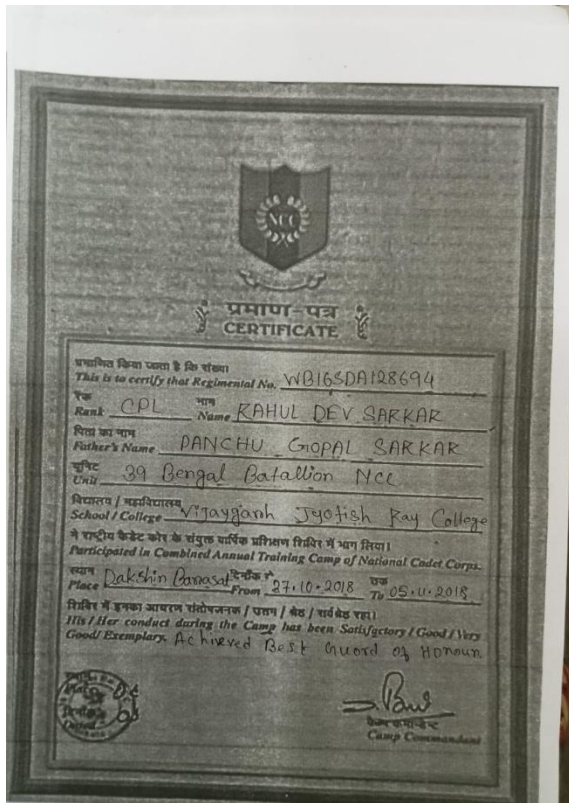 NCC
प्रमाण-पत्र
CERTIFICATE
प्रमाणित किया जाता है कि संख्या
This is to certify that Regimental No. WB16SDA128694
रैंक नाम
Rank CPL Name RAHUL DEV SARKAR
पिता का नाम
Father's Name PANCHU GOPAL SARKAR
यूनिट
Unit 39 Bengal Batallion NCC
विद्यालय / महाविद्यालय
School / College Vijaygarh Jyotish Ray College
ने राष्ट्रीय कैडेट कोर के संयुक्त वार्षिक प्रशिक्षण शिविर में भाग लिया।
Participated in Combined Annual Training Camp of National Cadet Corps.
स्थान दिनाँक से तक
Place Dakshin Barasat From 27.10.2018 To 05.11.2018
शिविर में इनका आचरण संतोषजनक / उत्तम / श्रेष्ठ / सर्वश्रेष्ठ रहा।
His / Her conduct during the Camp has been Satisfactory / Good / Very
Good / Exemplary. Achieved Best Guord of Honour
कैम्प कमान्डेन्ट
Camp Commandant